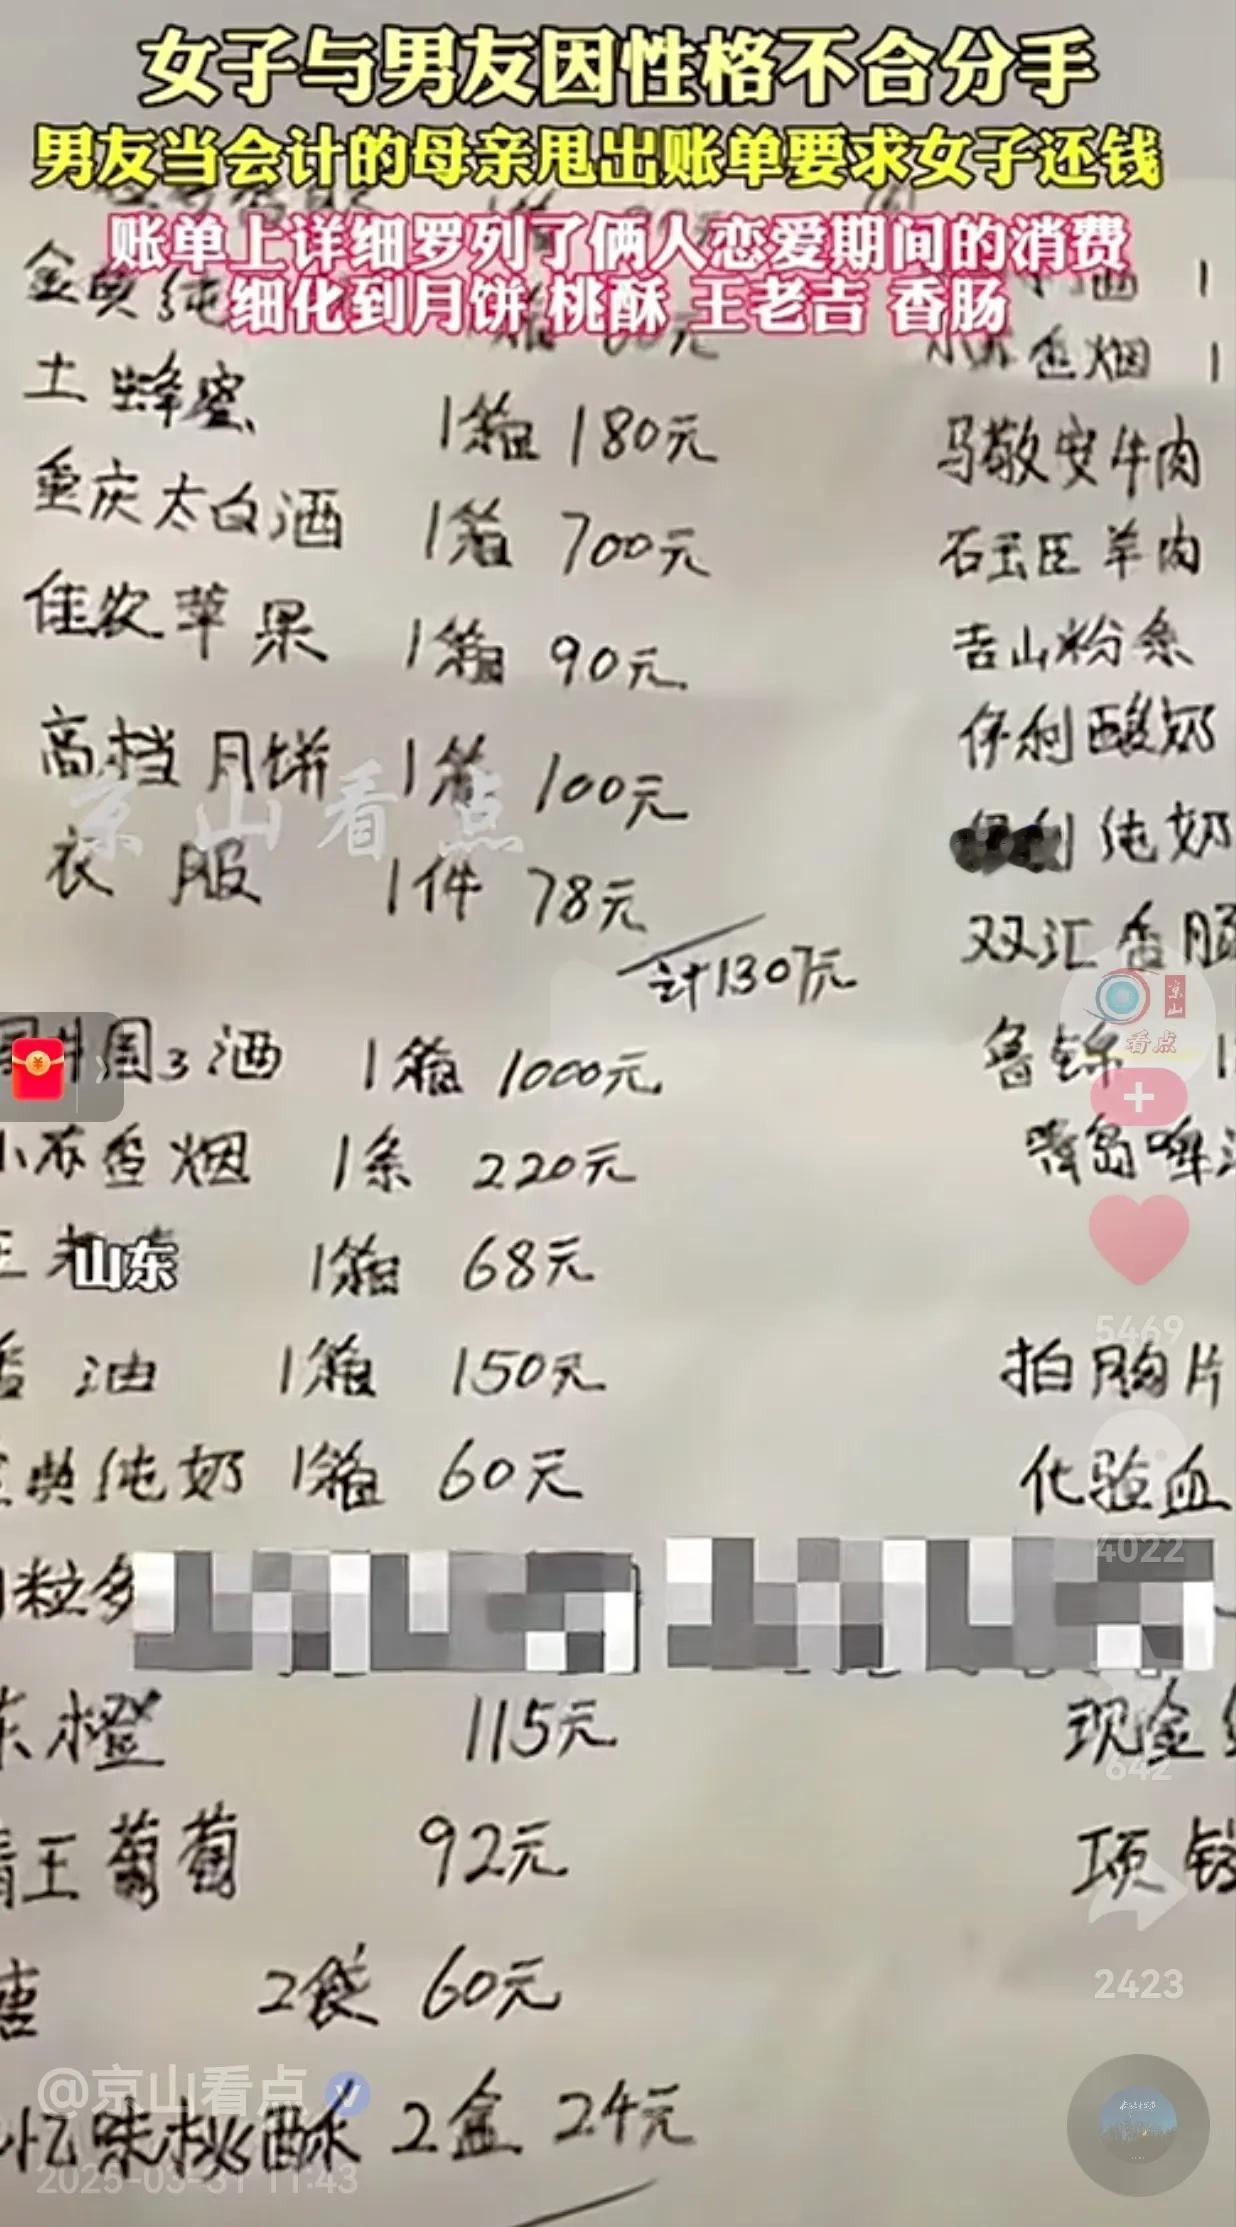 女子与男友因性格不合分手
男友当会计的母亲甩出账单要求女子还钱
账单上详细罗列了俩人恋爱期间的消费
细化到月饼 桃酥 王老吉 香肠
金典纯
土蜂蜜 1箱 180元
重庆太白酒 1箱 700元
佳农苹果 1箱 90元
高档月饼 1箱 100元
京山看点
衣服 1件 78元
计1307元
国3酒 1箱 1000元
小苏香烟 1条 220元
山东
1箱 68元
香油 1箱 150元
典纯奶 1箱 60元
粒多
橙 115元
王葡萄 92元
2袋 60元
忆味桃酥 2盒 24元
酒 1
小苏香烟 1
马敬安牛肉
石玉臣羊肉
吉山粉条
伊利酸奶
利纯奶
双汇香肠
京山
看点
5469
拍胸片
化验血
4022
现金
642
项
2423
@京山看点
2025-03-31 11:43